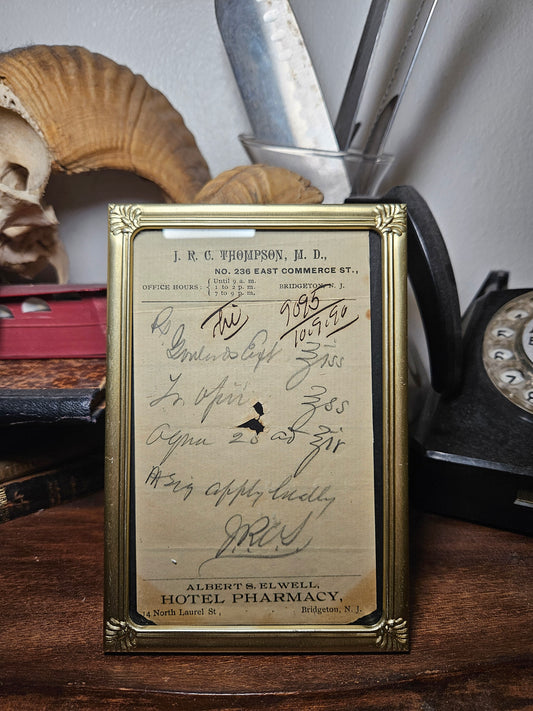 J. R. C. THOMPSON, M. D.,
NO. 236 EAST COMMERCE ST.,
OFFICE HOURS: { Until 9 a. m. 1 to 2 p. m. 7 to 9 p. m. } BRIDGETON, N. J.
9095
10-9-90
Rx
Goulards Ext ʒiss
Tr Opii ʒss
Aqua ad ʒiv
Sig apply locally
ALBERT S. ELWELL,
HOTEL PHARMACY,
14 North Laurel St, Bridgeton, N. J.